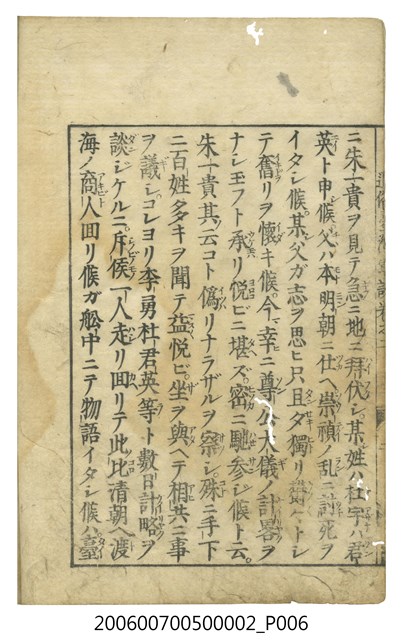 ニ朱一貴ヲ見テ急ニ地ニ拜伏シ某姓ハ杜字ハ君
英ト申候父ハ本明朝ニ仕ヘ崇禎ノ乱ニ討死ヲ
イタシ候某父ガ志ヲ思ヒ只且タ獨リ
テ奮リヲ懷キ候今幸ニ尊公大儀ノ計畧ヲ
ナシ玉フト承リ悦ビニ堪ズ密ニ馳參シ候ト云
朱一貴其云コト僞リナラザルヲ察シ殊ニ手下
ニ百姓多キヲ聞テ益悦ビ坐ヲ與ヘテ相共ニ事
ヲ議シコレヨリ李勇杜君英等ト數日計略ヲ
談シケルニ斥候一人走リ回リテ此比清朝ヘ渡
海ノ商人回リ候ガ舩中ニテ物語イタシ候ハ臺
200600700500002_P006